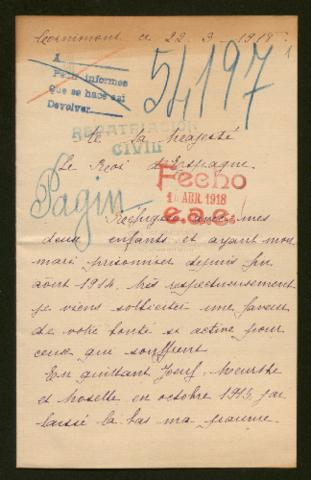 Cornimont ce 22-3-1918
1
A
Para informes
Que se hace así
Devolver
54197
REPATRIACIÓN
CIVIL
A Sa Majesté
Le Roi d'Espagne
Fecho
1 ABR. 1918
e.a.e.
Pagin
Réfugiée avec mes
deux enfants et ayant mon
mari prisonnier depuis fin
août 1914. Très respectueusement
je viens solliciter une faveur
de votre bonté si active pour
ceux qui souffrent
En quittant Joeuf, Meurthe
et Moselle en octobre 1915, j'ai
laissé là bas ma